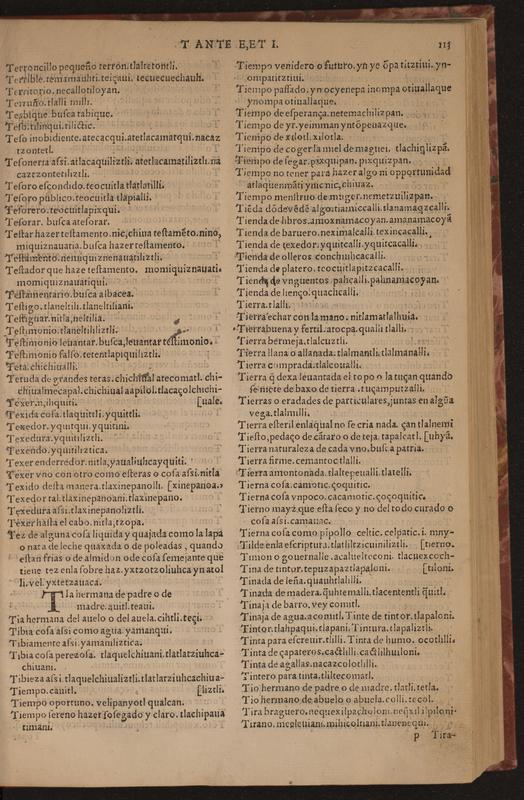 T ANTE E, ET I. 113
Terroncillo pequeño terron. tlaltetontli.
Terrible. temamauhti. teiçaui. tecuecuechauh.
Territorio. necallotiloyan.
Terruño. tlalli milli.
Tesbique. busca tabique.
Teso. tilinqui. tilictic.
Teso inobidiente. atecacqui. atetlacamatqui. nacaz
tzontetl.
Tesoneria assi. atlacaquiliztli. atetlacamatiliztli. na
caztzontetiliztli.
Tesoro escondido. teocuitla tlatlatilli.
Tesoro publico. teocuitla tlapialli.
Tesorero. teocuitlapixqui.
Tesorar. busca atesorar.
Testar hazer testamento. nic, chiua testamẽto. nino,
miquiznauatia. busca hazer testamento.
Testamento. nemiquiznenauatiliztli.
Testador que haze testamento. momiquiznauati.
momiquiznauatiqui.
Testamentario. busca albacea.
Testigo. tlaneltili. tlaneltiliani.
Testiguar. nitla, neltilia.
Testimonio. tlaneltililiztli.
Testimonio leuantar. busca, leuantar testimonio.
Testimonio falso. tetentlapiquiliztli.
Teta. chichiualli.
Tetuda de grandes tetas. chichiual atecomatl. chi-
chiualmecapal. chichiual aapilol. tlacaçolchichi-
Texer. n, ihquiti. [uale.
Texida cosa. tlaquititli. yquitli.
Texedor. yquitqui. yquitini.
Texedura. yquitiliztli.
Texendo. yquitiliztica.
Texer enderredor. nitla, yaualiuhcayquiti.
Texer vno con otro como esteras o cosa assi. nitla
Texido desta manera. tlaxinepanolli. [xinepanoa.
Texedor tal. tlaxinepanoani. tlaxinepano.
Texedura assi. tlaxinepanoliztli.
Texer hasta el cabo. nitla, tzopa.
Tez de alguna cosa liquida y quajada como la lapa
o nata de leche quaxada o de poleadas, quando
estan frias o de almidon o de cosa semejante que
tiene tez enla sobre haz. yxtzotzoliuhca yn atol
li. vel. yxtetzauaca.
Tia hermana de padre o de
madre. auitl. teaui.
Tia hermana del auelo o del auela. cihtli. teçi.
Tibia cosa assi como agua. yamanqui.
Tibiamente assi. yamaniliztica.
Tibia cosa perezosa. tlaquelchiuani. tlatlatziuhca-
chiuani.
Tibieza assi. tlaquelchiualiztli. tlatlatziuhcachiua-
Tiempo. cauitl. [liztli.
Tiempo oportuno. velipanyotl qualcan.
Tiempo sereno hazer sosegado y claro. tlachipaua
timani.
Tiempo venidero o futuro. yn ye õpa titztiui. yn-
ompatitztiui.
Tiempo passado. yn ocyenepa inompa otiuallaque
ynompa otiuallaque.
Tiempo de esperança. netemachilizpan.
Tiempo de yr. yeimman yntõpenazque.
Tiempo de xilotl. xilotla.
Tiempo de coger la miel de maguei. tlachiqlizpã.
Tiempo de segar. pixquipan. pixquizpan.
Tiempo no tener para hazer algo ni opportunidad
atlaquenmãti ynic nic, chiuaz.
Tiempo menstruo de muger. nemetzuilizpan.
Tiẽda dõdevẽdẽ algo. tiamiccalli. tlanamaqzcalli.
Tienda de libros. amoxnamacoyan. amanamacoyã
Tienda de baruero. neximalcalli. texincacalli.
Tienda de texedor. yquitcalli. yquitcacalli.
Tienda de olleros. conchiuhcacalli.
Tienda de platero. teocuitlapitzcacalli.
Tienda de vnguentos. pahcalli. pahnamacoyan.
Tienda de lienço. quachcalli.
Tierra. tlalli.
Tierra echar con la mano. nitlamatlalhuia.
Tierra buena y fertil. atocpa. qualli tlalli.
Tierra bermeja. tlalcuztli.
Tierra llana o allanada. tlalmantli. tlalmanalli.
Tierra comprada. tlalcoualli.
Tierra q̃ dexa leuantada el topo o la tuçan quando
se mete de baxo de tierra. tuçamputzalli.
Tierras o eradades de particulares, juntas en algũa
vega. tlalmilli.
Tierra esteril enlaqual no se cria nada. çan tlalnemi
Tiesto, pedaço de cãtaro o de teja. tapalcatl. [uhyã.
Tierra naturaleza de cada vno. bus. patria.
Tierra firme. cemantoc tlalli.
Tierra amontonada. tlaltepeualli. tlatelli.
Tierna cosa. camotic. çoquitic.
Tierna cosa vnpoco. cacamotic. çoçoquitic.
Tierno mayz. que esta seco y no del todo curado o
cosa assi. camauac.
Tierna cosa como pipollo. celtic. celpatic. i. mny-
Tilde enla escriptura. tlatliltzicuiniliztli. [tierno.
Timon o gouernalle. acalhuelteconi. tlacuexcoch-
Tina de tintor. tepuzapaztlapaloni. [tiloni.
Tinada de leña. quauhtlalilli.
Tinada de madera. q̃uhtemalli. tlacententli q̃uitl.
Tinaja de barro. vey comitl.
Tinaja de agua. acomitl. Tinte de tintor. tlapaloni.
Tintor. tlapaqui. tlapani. Tintura. tlapaliztli.
Tinta para escreuir. tlilli. Tinta de humo. ocotlilli.
Tinta de çapateros. cactlilli. cactlilhuiloni.
Tinta de agallas. nacazcolotlilli.
Tintero para tinta. tliltecomatl.
Tio hermano de padre o de madre. tlatli. tetla.
Tio hermano de abuelo o abuela. colli. tecol.
Tira braguero. nequexilpacholoni. neq̃xililpiloni.
Tirano. tlanenequi.
p Tira-